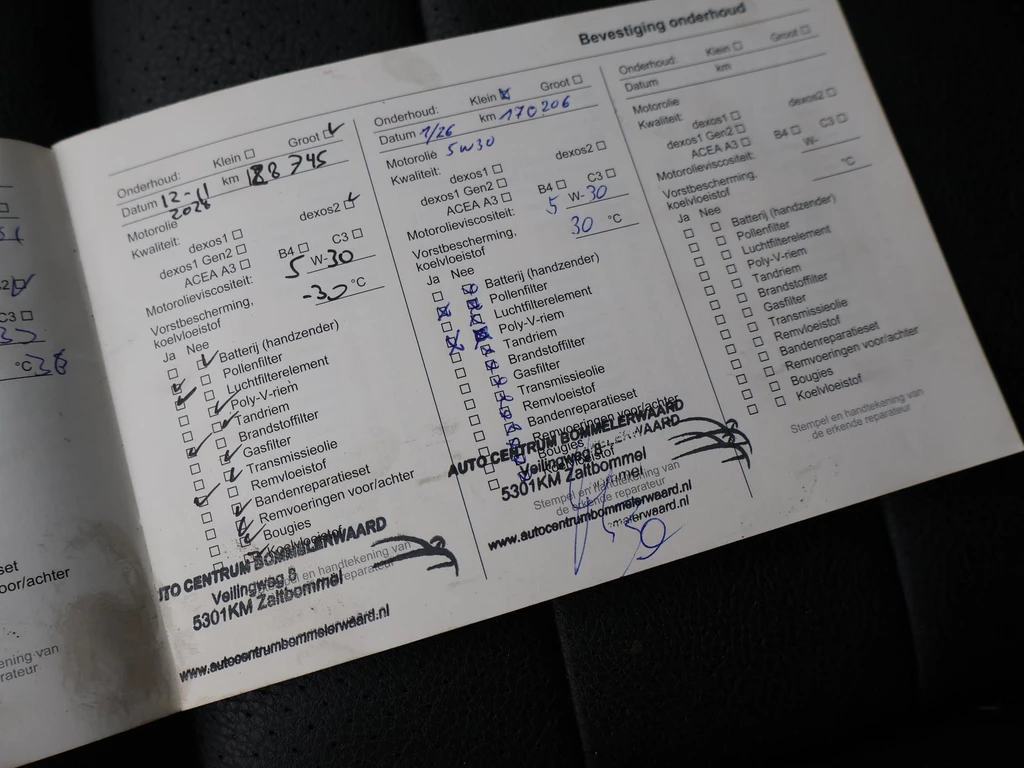 Bevestiging onderhoud
Onderhoud: Klein Groot
Datum 12-11 2024 km
Motorolie
Kwaliteit: dexos1 dexos2
dexos1 Gen2
ACEA A3 B4 C3
Motorolieviscositeit: 5 W-30
Vorstbescherming, koelvloeistof -30 °C
Ja Nee
Batterij (handzender)
Pollenfilter
Luchtfilterelement
Poly-V-riem
Tandriem
Brandstoffilter
Gasfilter
Transmissieolie
Remvloeistof
Bandenreparatieset
Remvoeringen voor/achter
Bougies
Koelvloeistof
Stempel en handtekening van
de erkende reparateur
AUTO CENTRUM BOMMELERWAARD
Veilingweg 8
5301KM Zaltbommel
www.autocentrumbommelerwaard.nl
Onderhoud: Klein Groot
Datum 1/26 km 170206
Motorolie 5W30
Kwaliteit: dexos1 dexos2
dexos1 Gen2
ACEA A3 B4 C3
Motorolieviscositeit: 5 W-30
Vorstbescherming, koelvloeistof 30 °C
Ja Nee
Batterij (handzender)
Pollenfilter
Luchtfilterelement
Poly-V-riem
Tandriem
Brandstoffilter
Gasfilter
Transmissieolie
Remvloeistof
Bandenreparatieset
Remvoeringen voor/achter
Bougies
Koelvloeistof
AUTO CENTRUM BOMMELERWAARD
Veilingweg 8
5301KM Zaltbommel
Stempel en handtekening van
de erkende reparateur
www.autocentrumbommelerwaard.nl
Onderhoud: Klein Groot
Datum km
Motorolie
Kwaliteit: dexos1 dexos2
dexos1 Gen2
ACEA A3 B4 C3
Motorolieviscositeit: W-
Vorstbescherming, koelvloeistof °C
Ja Nee
Batterij (handzender)
Pollenfilter
Luchtfilterelement
Poly-V-riem
Tandriem
Brandstoffilter
Gasfilter
Transmissieolie
Remvloeistof
Bandenreparatieset
Remvoeringen voor/achter
Bougies
Koelvloeistof
Stempel en handtekening van
de erkende reparateur